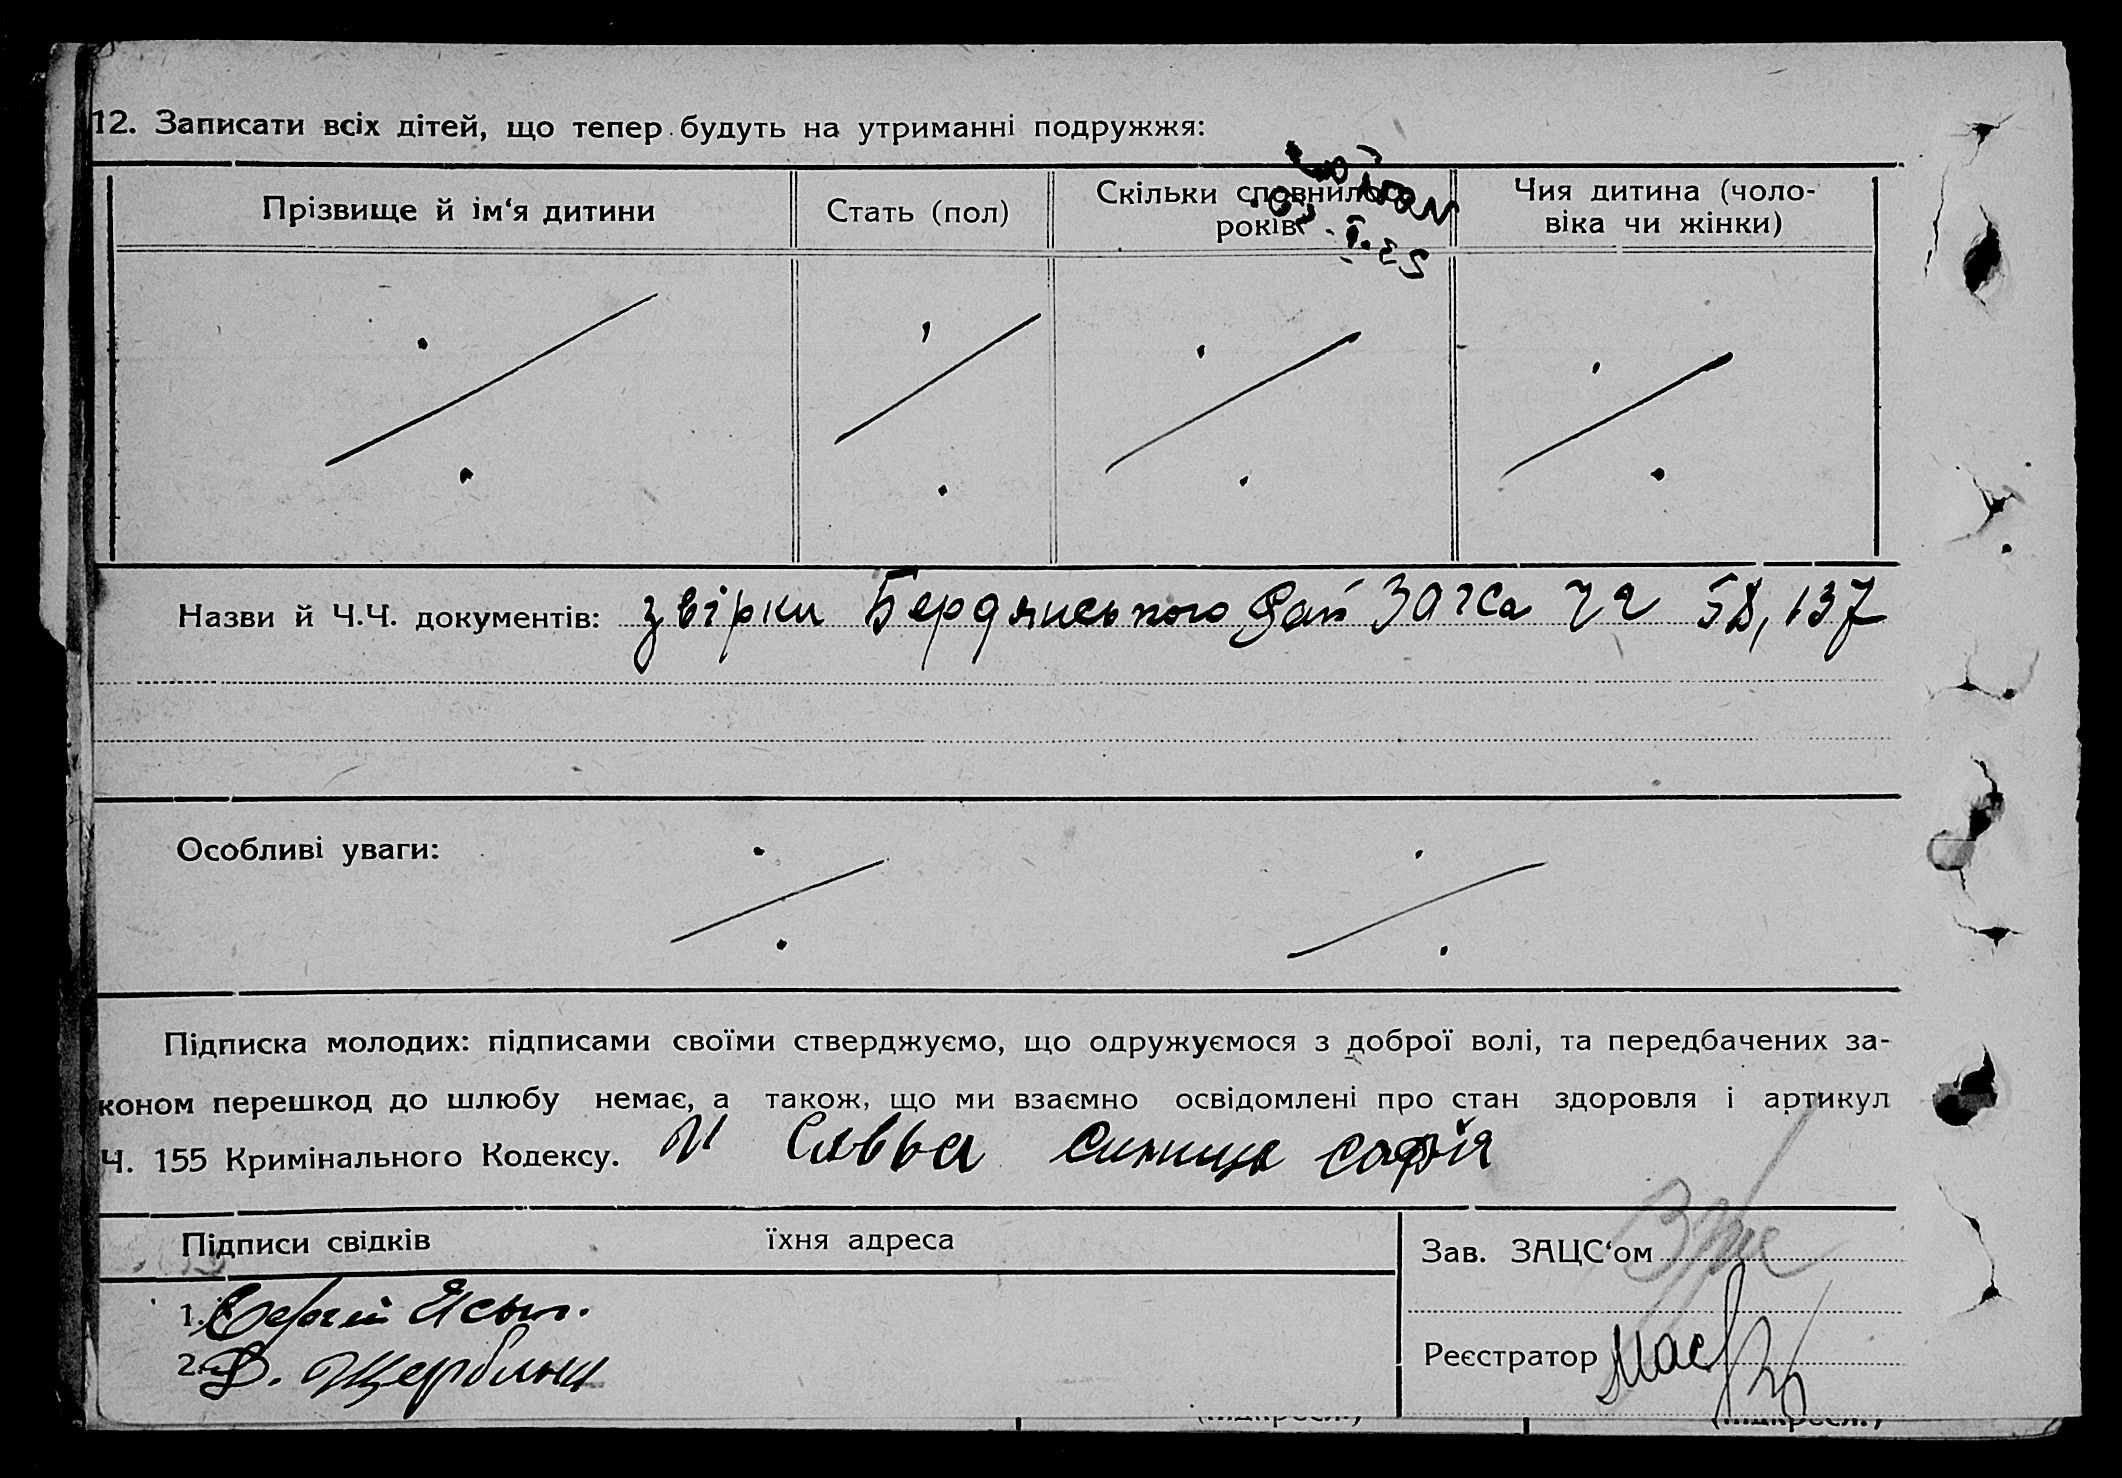 12. Записати всіх дітей, що тепер будуть на утриманні подружжя:
Прізвище й ім‘я дитини
Стать (пол)
Скільки сповнилося
років
Чия дитина (чоло-
віка чи жінки)
Назви й Ч.Ч. документів: звірки Бердянського Рай ЗАГСа 58, 137
Особливі уваги:
Підписка молодих: підписами своїми стверджуємо, що одружуємося з доброї волі, та передбачених за-
коном перешкод до шлюбу немає, а також, що ми взаємно освідомлені про стан здоровля і артикул
Ч. 155 Кримінального Кодексу. Савва Синица Софія
Підписи свідків їхня адреса
Зав. ЗАЦС‘ом
1. Сергій
2. Щербина
Реєстратор